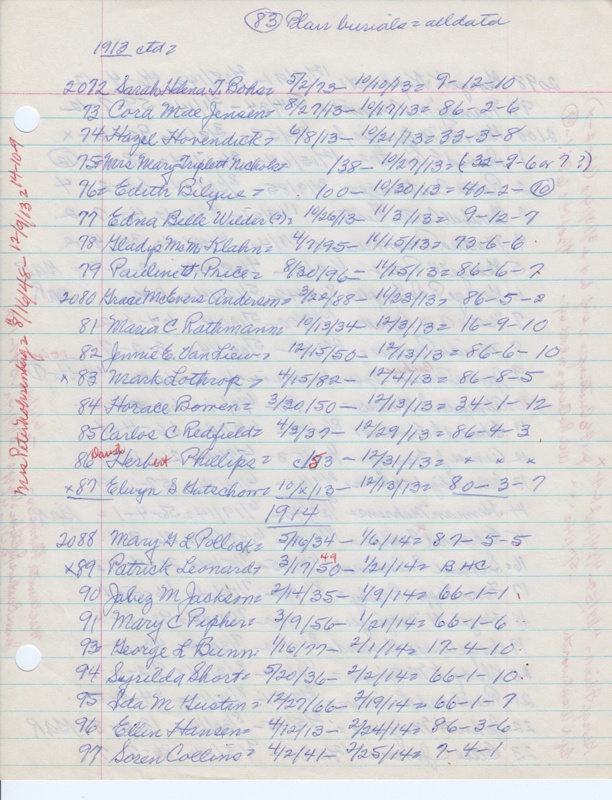 (83) Blair burials = all data
1913 ctd =
2072 Sarah Helena T. Bohs = 5/2/73 - 10/10/13 = 9-12-10
73 Cora Mae Jensen = 8/27/13 - 10/17/13 = 86-2-6
74 Hazel Hovendick = 6/8/13 - 10/21/13 = 33-3-8
75 Mrs Mary Triplett Nichols = /38 - 10/27/13 = (32-9-6 or 7?)
76 = Edith Bilyue = 100 - 10/30/13 = 40-2-(10)
77 Edna Belle Wilder (?) = 10/26/13 - 11/3/13 = 9-12-7
78 Gladys McM. Klahn = 4/7/95 - 11/15/13 = 73-6-6
79 Pauline Price = 8/30/96 - 11/15/13 = 86-6-7
2080 Grace McEvers Anderson = 3/22/88 - 11/23/13 = 86-5-2
81 Maria C Rathmann = 10/13/34 - 12/3/13 = 16-9-10
82 Jennie E. Van Liew = 12/15/50 - 12/13/13 = 86-6-10
x 83 Mark Lothrop = 4/15/82 - 12/4/13 = 86-8-5
84 Horace Bomen = 3/30/50 - 12/13/13 = 34-1-12
85 Carlos C Redfield = 4/3/37 - 12/29/13 = 86-4-3
86 David Herbert Phillips = c/53 - 12/31/13 = x x x
x 87 Elwyn S Gutschow = 10/x/13 - 12/13/13 = 80-3-7
1914
2088 Mary G L Pollock = 5/16/34 - 1/6/14 = 87-5-5
x 89 Patrick Leonard = 3/17/50 49 - 1/21/14 = BHC
90 Jabez M Jackson = 2/14/35 - 1/9/14 = 66-1-1
91 Mary C Pipher = 3/9/56 - 1/21/14 = 66-1-6
93 = George L Bunn = 1/16/77 - 2/1/14 = 17-4-10
94 Syrilda Short = 5/20/36 - 2/2/14 = 66-1-10
95 Ida M Gustin = 12/27/66 - 2/19/14 = 66-1-7
96 Ellen Hansen = 4/12/13 - 2/24/14 = 86-3-6
97 Soren Collins = 4/2/41 - 2/25/14 = 7-4-1
Mrs Peter = 8/16/48 - 12/9/13 = 14-10-9